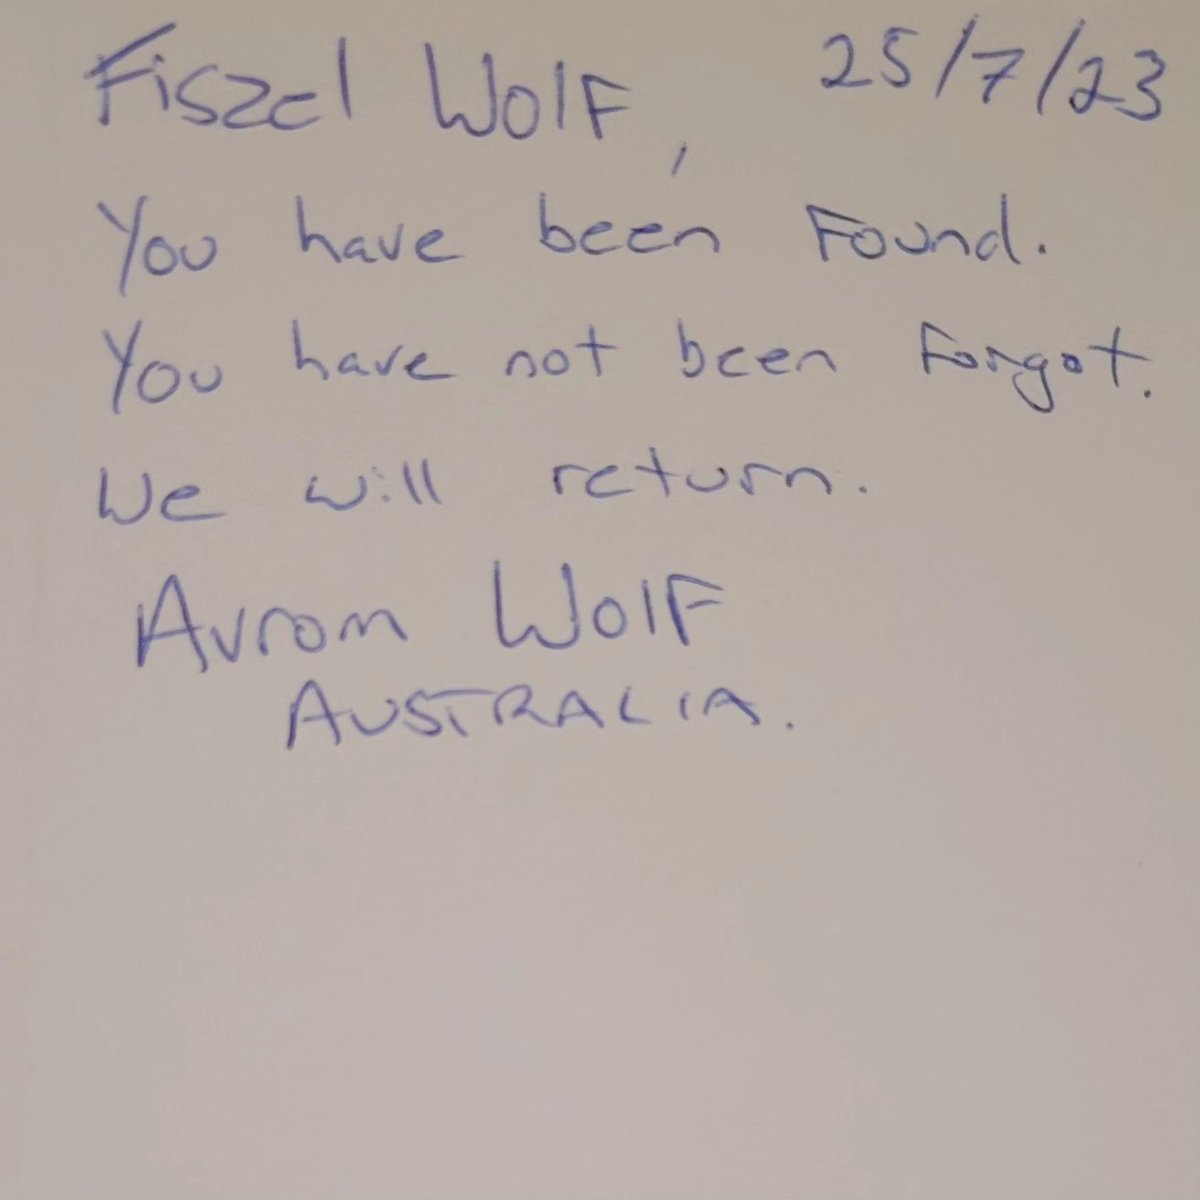 Fiszel Wolf, 25/7/23
You have been Found.
You have not been Forgot.
We will return.
Avrom Wolf
AUSTRALIA.